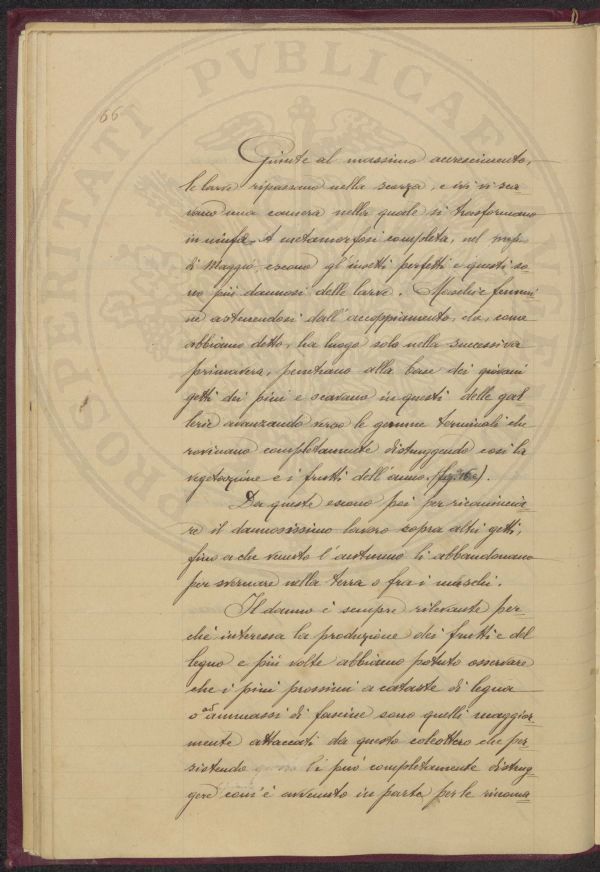 66
Giunte al massimo accrescimento,
le larve ripassano nella scorza, e ivi si sca
vano una camera nella quale si trasformano
in ninfa. A metamorfosi completa, nel
di Maggio escono gl'insetti perfetti e questi so=
no più dannosi delle larve. Maschi e femmi
ne astenendosi dall'accoppiamento, che, come
abbiamo detto, ha luogo solo nella successiva
primavera, penetrano alla base dei giovani
getti dei pini e scavano in questi delle gal
lerie avanzando verso le gemme terminali che
rovinano completamente distruggendo così la
vegetazione e i frutti dell'anno. (fig.
Da queste escono poi per ricomincia=
re il dannosissimo lavoro sopra altri getti,
fino a che venuto l'autunno li abbandonano
per svernare nella terra o fra i muschi.
Il danno è sempre rilevante per=
chè interessa la produzione dei frutti e del
legno e più volte abbiamo potuto osservare
che i pini prossimi a cataste di legna
o ad ammassi di fascine sono quelli maggior=
mente attaccati da questo coleottero che per=
sistendo li può completamente distrug=
gere com'è avvenuto in parte per le rinoma=
PROSPERITATI PVBLICAE